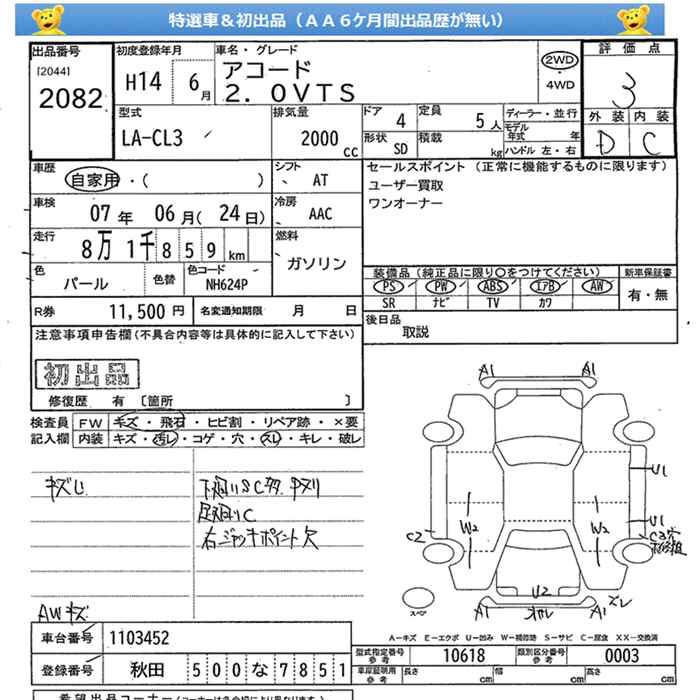 特選車&初出品(AA6ケ月間出品歴が無い)
出品番号 初度登録年月 車名・グレード 2WD 評価点
[2044] 2082 H14 6月 アコード ・4WD 3
2.0VTS
型式 排気量 ドア 4 定員 5人 ディーラー・並行 外装 内装
LA-CL3 2000cc 形状 SD 積載 kg モデル年式 年 ハンドル 左・右 D C
車歴 自家用・( ) シフト AT セールスポイント (正常に機能するものに限ります)
車検 07年 06月(24日) 冷房 AAC ユーザー買取
ワンオーナー
走行 8万1千859km 燃料 ガソリン
色 パール 色替 色コード NH624P
装備品(純正品に限り○をつけてください) 新車保証書
PS PW ABS エアB AW 有・無
SR ナビ TV カワ
R券 11,500円 名変通知期限 月 日
後日品 取説
注意事項申告欄(不具合内容等は具体的に記入して下さい)
初出品
修復歴 有 [箇所 ]
検査員 FW キズ・飛石・ヒビ割・リペア跡・×要
記入欄 内装 キズ・汚レ・コゲ・穴・スレ・キレ・破レ
下廻りSC
足廻りC
右ジャッキポイント欠
AWキズ
A1 A1
U1
U1
W2 W2
C2
U2
A1 A1 ズレ
スペア
A-キズ E-エクボ U-凹み W-補修跡 S-サビ C-腐食 XX-交換済
車台番号 1103452
型式指定番号 参考 10618 類別区分番号 参考 0003
登録番号 秋田 500な7851
車庫証明用 参考 長さ cm 幅 cm 高さ cm
希望出品コーナー